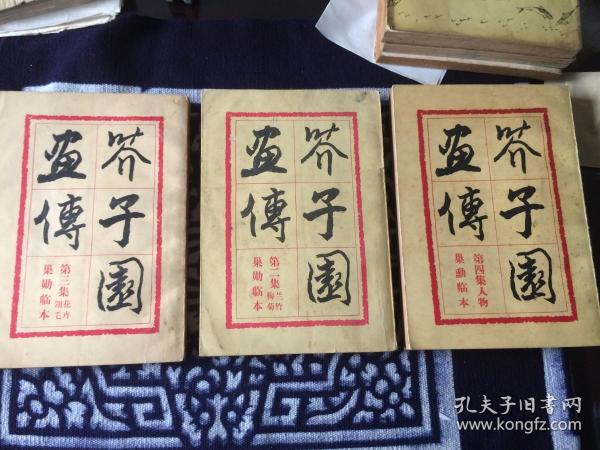 芥子園
畫傳
第三集花卉翎毛
巢勋临本
芥子園
畫傳
第二集兰竹梅菊
巢勋临本
芥子園
畫傳
第四集人物
巢勋临本
孔夫子旧书网
www.kongfz.com